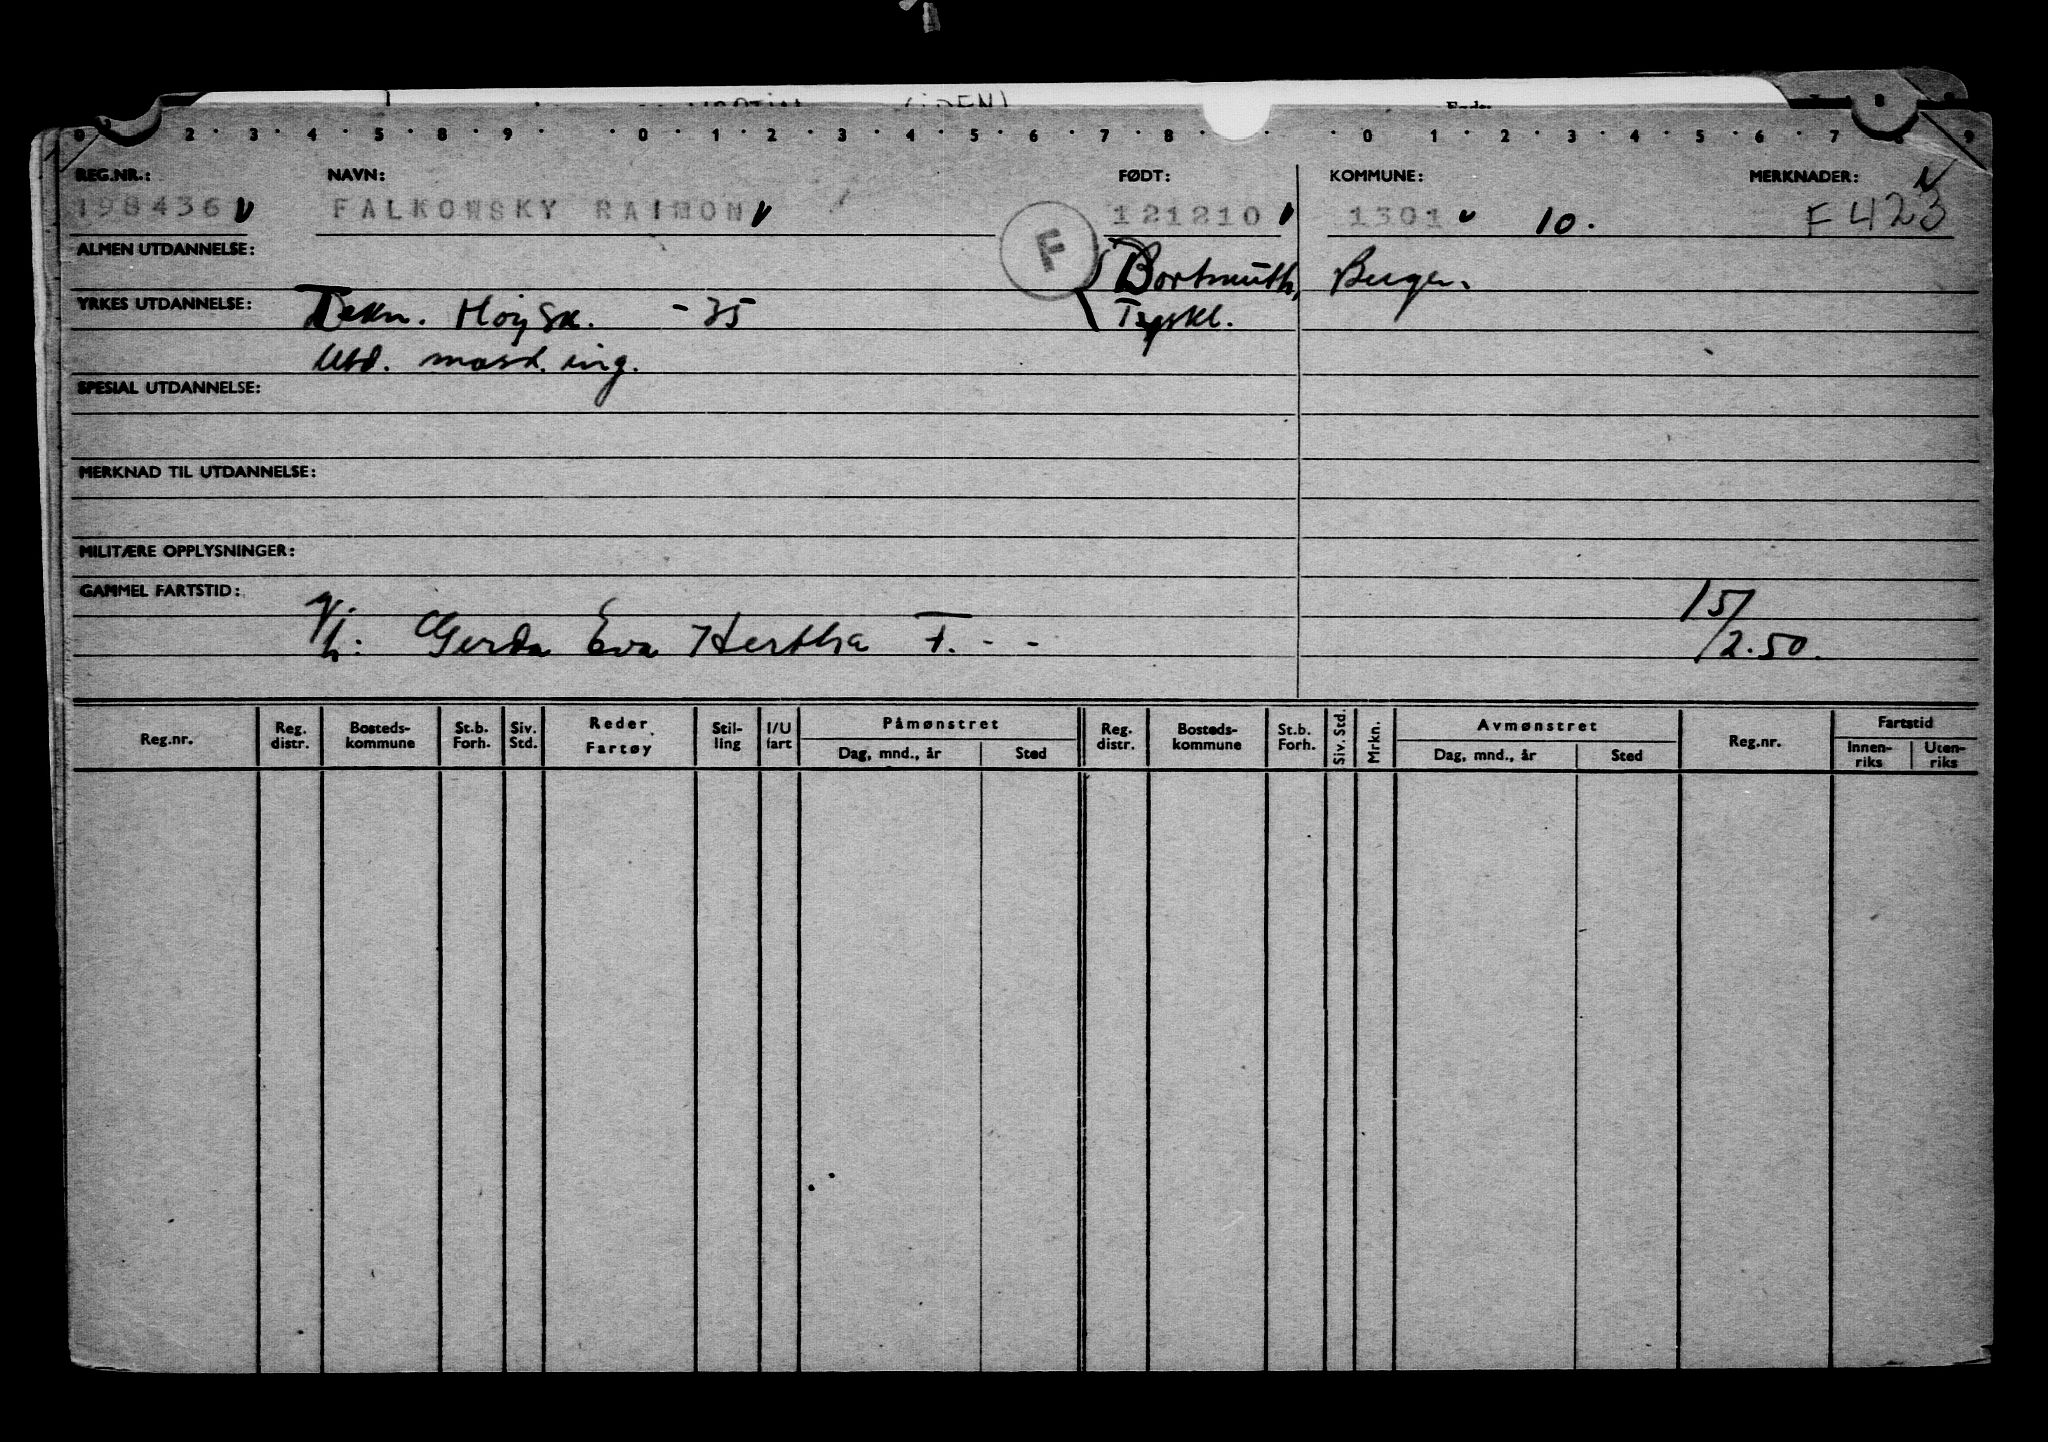 0 2 3 4 5 8 9 0 1 2 3 4 5 6 7 8 0 1 2 3 4 5 6 7 8 9
REG.NR.: NAVN: FØDT: KOMMUNE: MERKNADER:
198436 FALKOWSKY RAIMON 121210 1301 10. F 423
ALMEN UTDANNELSE: F Dortmuth, Bergen.
YRKES UTDANNELSE: Tekn. Høy Sk. -35 Tyskl.
Utd. mask. ing.
SPESIAL UTDANNELSE:
MERKNAD TIL UTDANNELSE:
MILITÆRE OPPLYSNINGER:
GAMMEL FARTSTID:
g/h: Gerda Eva Hertha F. - - 15/2.50.
Reg.nr. Reg. distr. Bosteds-kommune St.b. Forh. Siv. Std. Reder Fartøy Stil-ling I/U fart Påmønstret Reg. distr. Bosteds-kommune St.b. Forh. Siv. Std. Mrkn. Avmønstret Reg.nr. Fartstid
Dag, mnd., år Sted Dag, mnd., år Sted Innen-riks Uten-riks